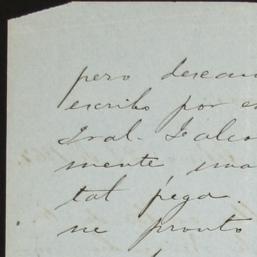 pero desean
escribo por es
Gral. Falco
mente, una
tal pega.
ne pronto